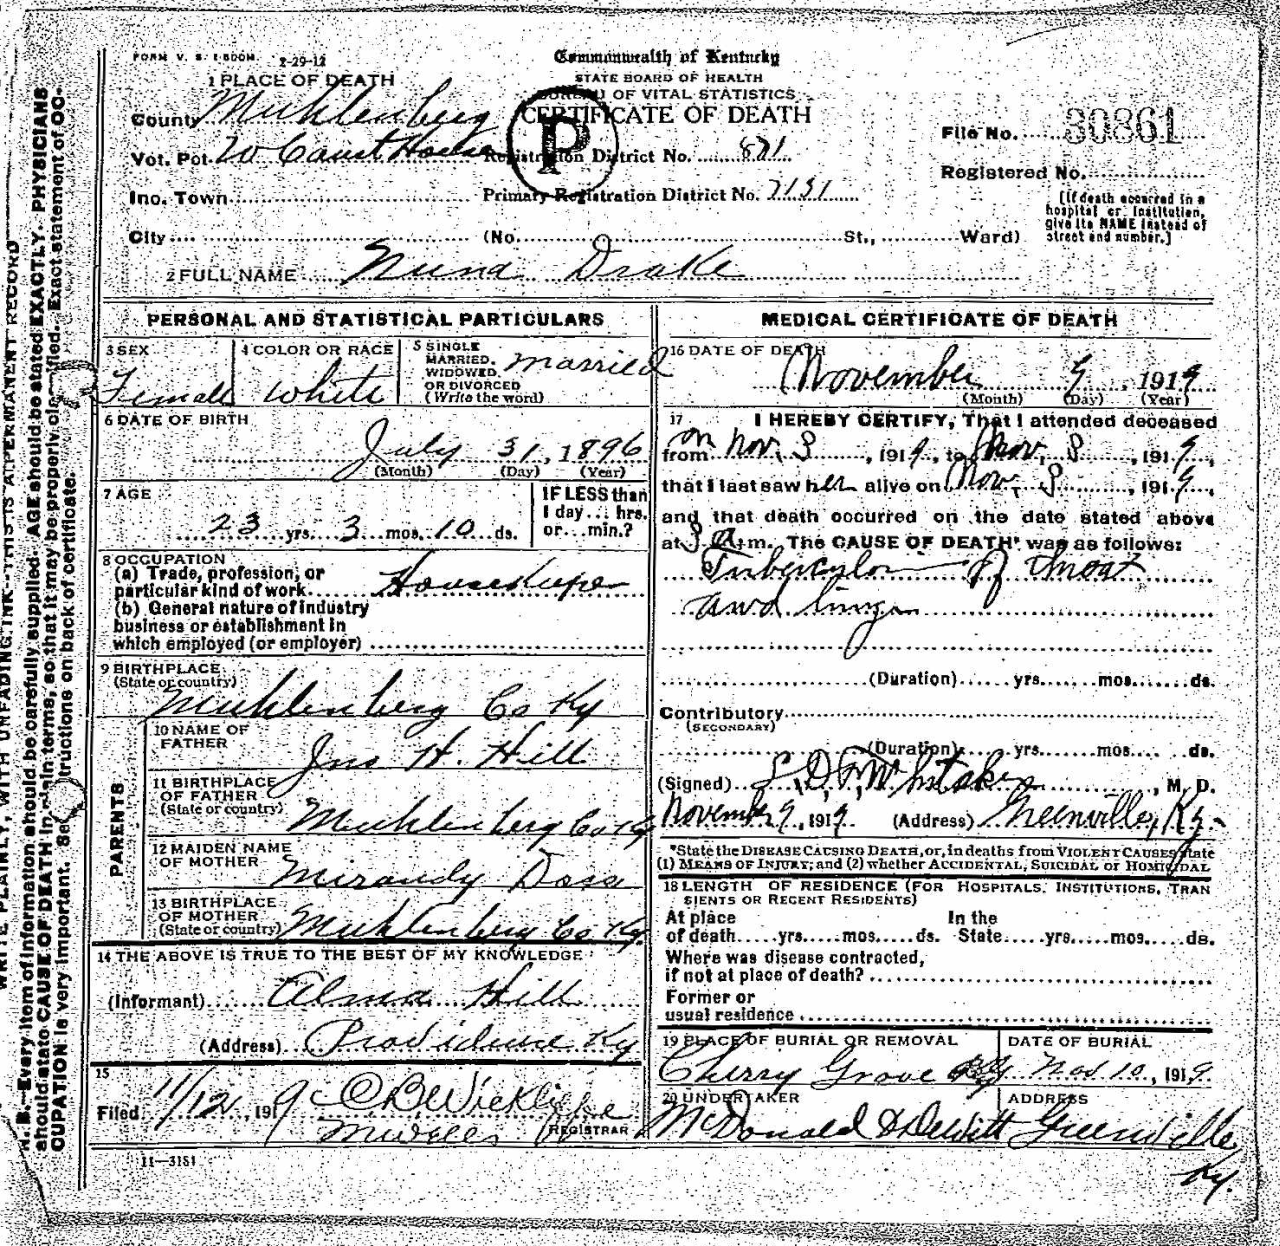 FORM V. S. 1-500M 2-29-12
Commonwealth of Kentucky
STATE BOARD OF HEALTH
BUREAU OF VITAL STATISTICS
CERTIFICATE OF DEATH
P
1 PLACE OF DEATH
County Muhlenberg
Vot. Pct. 20 Court House Registration District No. 871
File No. 30361
Registered No.
Inc. Town Primary Registration District No. 7151
[If death occurred in a hospital or institution, give its NAME instead of street and number.]
City (No. St., Ward)
2 FULL NAME Nuna Drake
PERSONAL AND STATISTICAL PARTICULARS
3 SEX Female
4 COLOR OR RACE White
5 SINGLE MARRIED, WIDOWED, OR DIVORCED (Write the word) Married
6 DATE OF BIRTH
July 31, 1896
(Month) (Day) (Year)
7 AGE
23 yrs. 3 mos. 10 ds.
IF LESS than 1 day... hrs. or...min.?
8 OCCUPATION
(a) Trade, profession, or particular kind of work Housekeeper
(b) General nature of industry business or establishment in which employed (or employer)
9 BIRTHPLACE (State or country)
Muhlenberg Co Ky
PARENTS
10 NAME OF FATHER Jno H. Hill
11 BIRTHPLACE OF FATHER (State or country) Muhlenberg Co Ky
12 MAIDEN NAME OF MOTHER Mirandy Doss
13 BIRTHPLACE OF MOTHER (State or country) Muhlenberg Co Ky.
14 THE ABOVE IS TRUE TO THE BEST OF MY KNOWLEDGE
(Informant) Alma Hill
(Address) Providence Ky
15
Filed 11/12, 1919 C B Wickliffe
M Wells
REGISTRAR
11-3151
MEDICAL CERTIFICATE OF DEATH
16 DATE OF DEATH
November 9, 1919
(Month) (Day) (Year)
17 I HEREBY CERTIFY, That I attended deceased
on
from Nov. 8, 1919, to Nov. 8, 1919,
that I last saw her alive on Nov. 8, 1919,
and that death occurred on the date stated above
at 3 a.m. The CAUSE OF DEATH* was as follows:
Tuberculosis of throat
and lungs
(Duration) yrs. mos. ds.
Contributory
(SECONDARY)
(Duration) yrs. mos. ds.
(Signed) Whitaker, M. D.
November 9, 1919 (Address) Greenville, Ky.
*State the DISEASE CAUSING DEATH, or, in deaths from VIOLENT CAUSES state
(1) MEANS OF INJURY; and (2) whether ACCIDENTAL, SUICIDAL or HOMICIDAL
18 LENGTH OF RESIDENCE (FOR HOSPITALS, INSTITUTIONS, TRAN
SIENTS OR RECENT RESIDENTS)
At place In the
of death yrs. mos. ds. State yrs. mos. ds.
Where was disease contracted,
if not at place of death?
Former or
usual residence
19 PLACE OF BURIAL OR REMOVAL DATE OF BURIAL
Cherry Grove Nov 10, 1919.
20 UNDERTAKER ADDRESS
McDonald & DeWitt Greenville
Ky.
WRITE PLAINLY, WITH UNFADING INK--THIS IS A PERMANENT RECORD
N. B.--Every item of information should be carefully supplied. AGE should be stated EXACTLY. PHYSICIANS
should state CAUSE OF DEATH in plain terms, so that it may be properly classified. Exact statement of OC-
CUPATION is very important. See instructions on back of certificate.